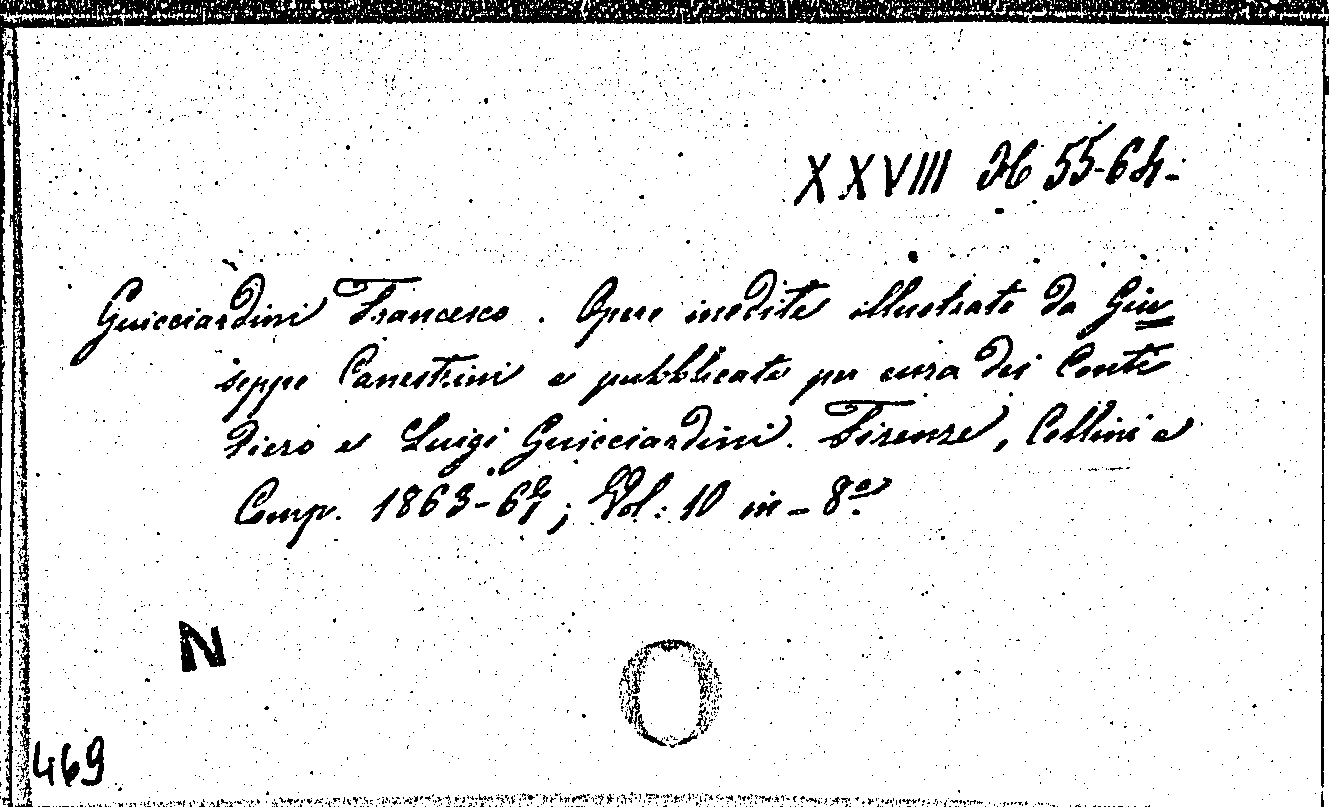 XXVIII H 55-64-
Guicciardini Francesco. Opere inedite illustrate da Giu=
seppe Canestrini e pubblicate per cura dei Conti
Piero e Luigi Guicciardini. Firenze, Cellini e
Comp. 1863-67; Vol: 10 in-8º
N
O
469